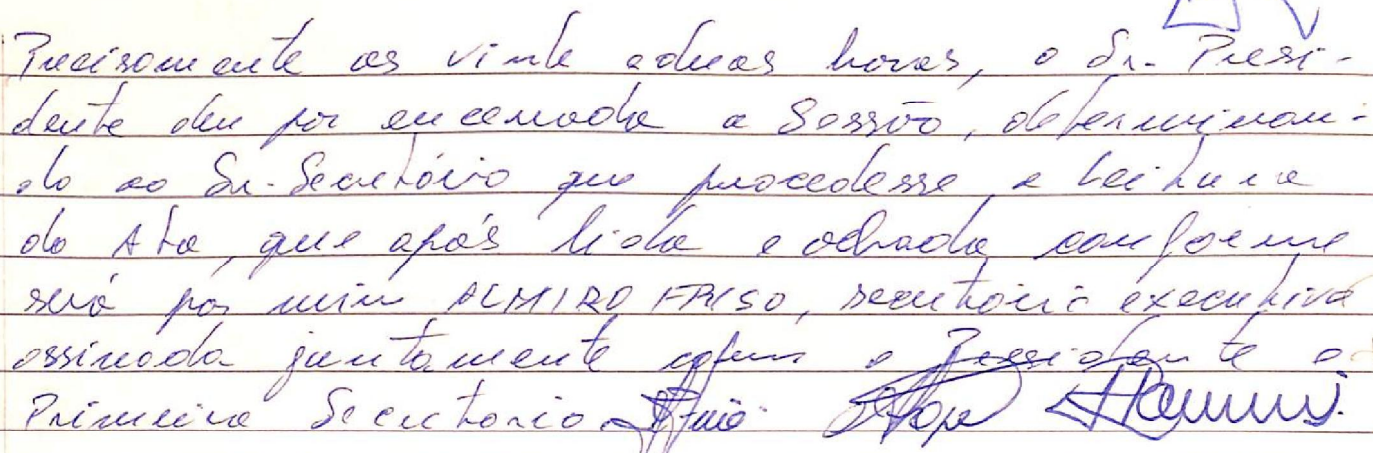 Precisamente as vinte e duas horas, o Sr. Presi-
dente deu por encerrada a Sessão, determinan-
do ao Sr. Secretário que procedesse a leitura
da Ata, que após lida e achada conforme
será por mim ALMIRO FRISO, secretário executivo
assinada juntamente com o Presidente e
Primeiro Secretario